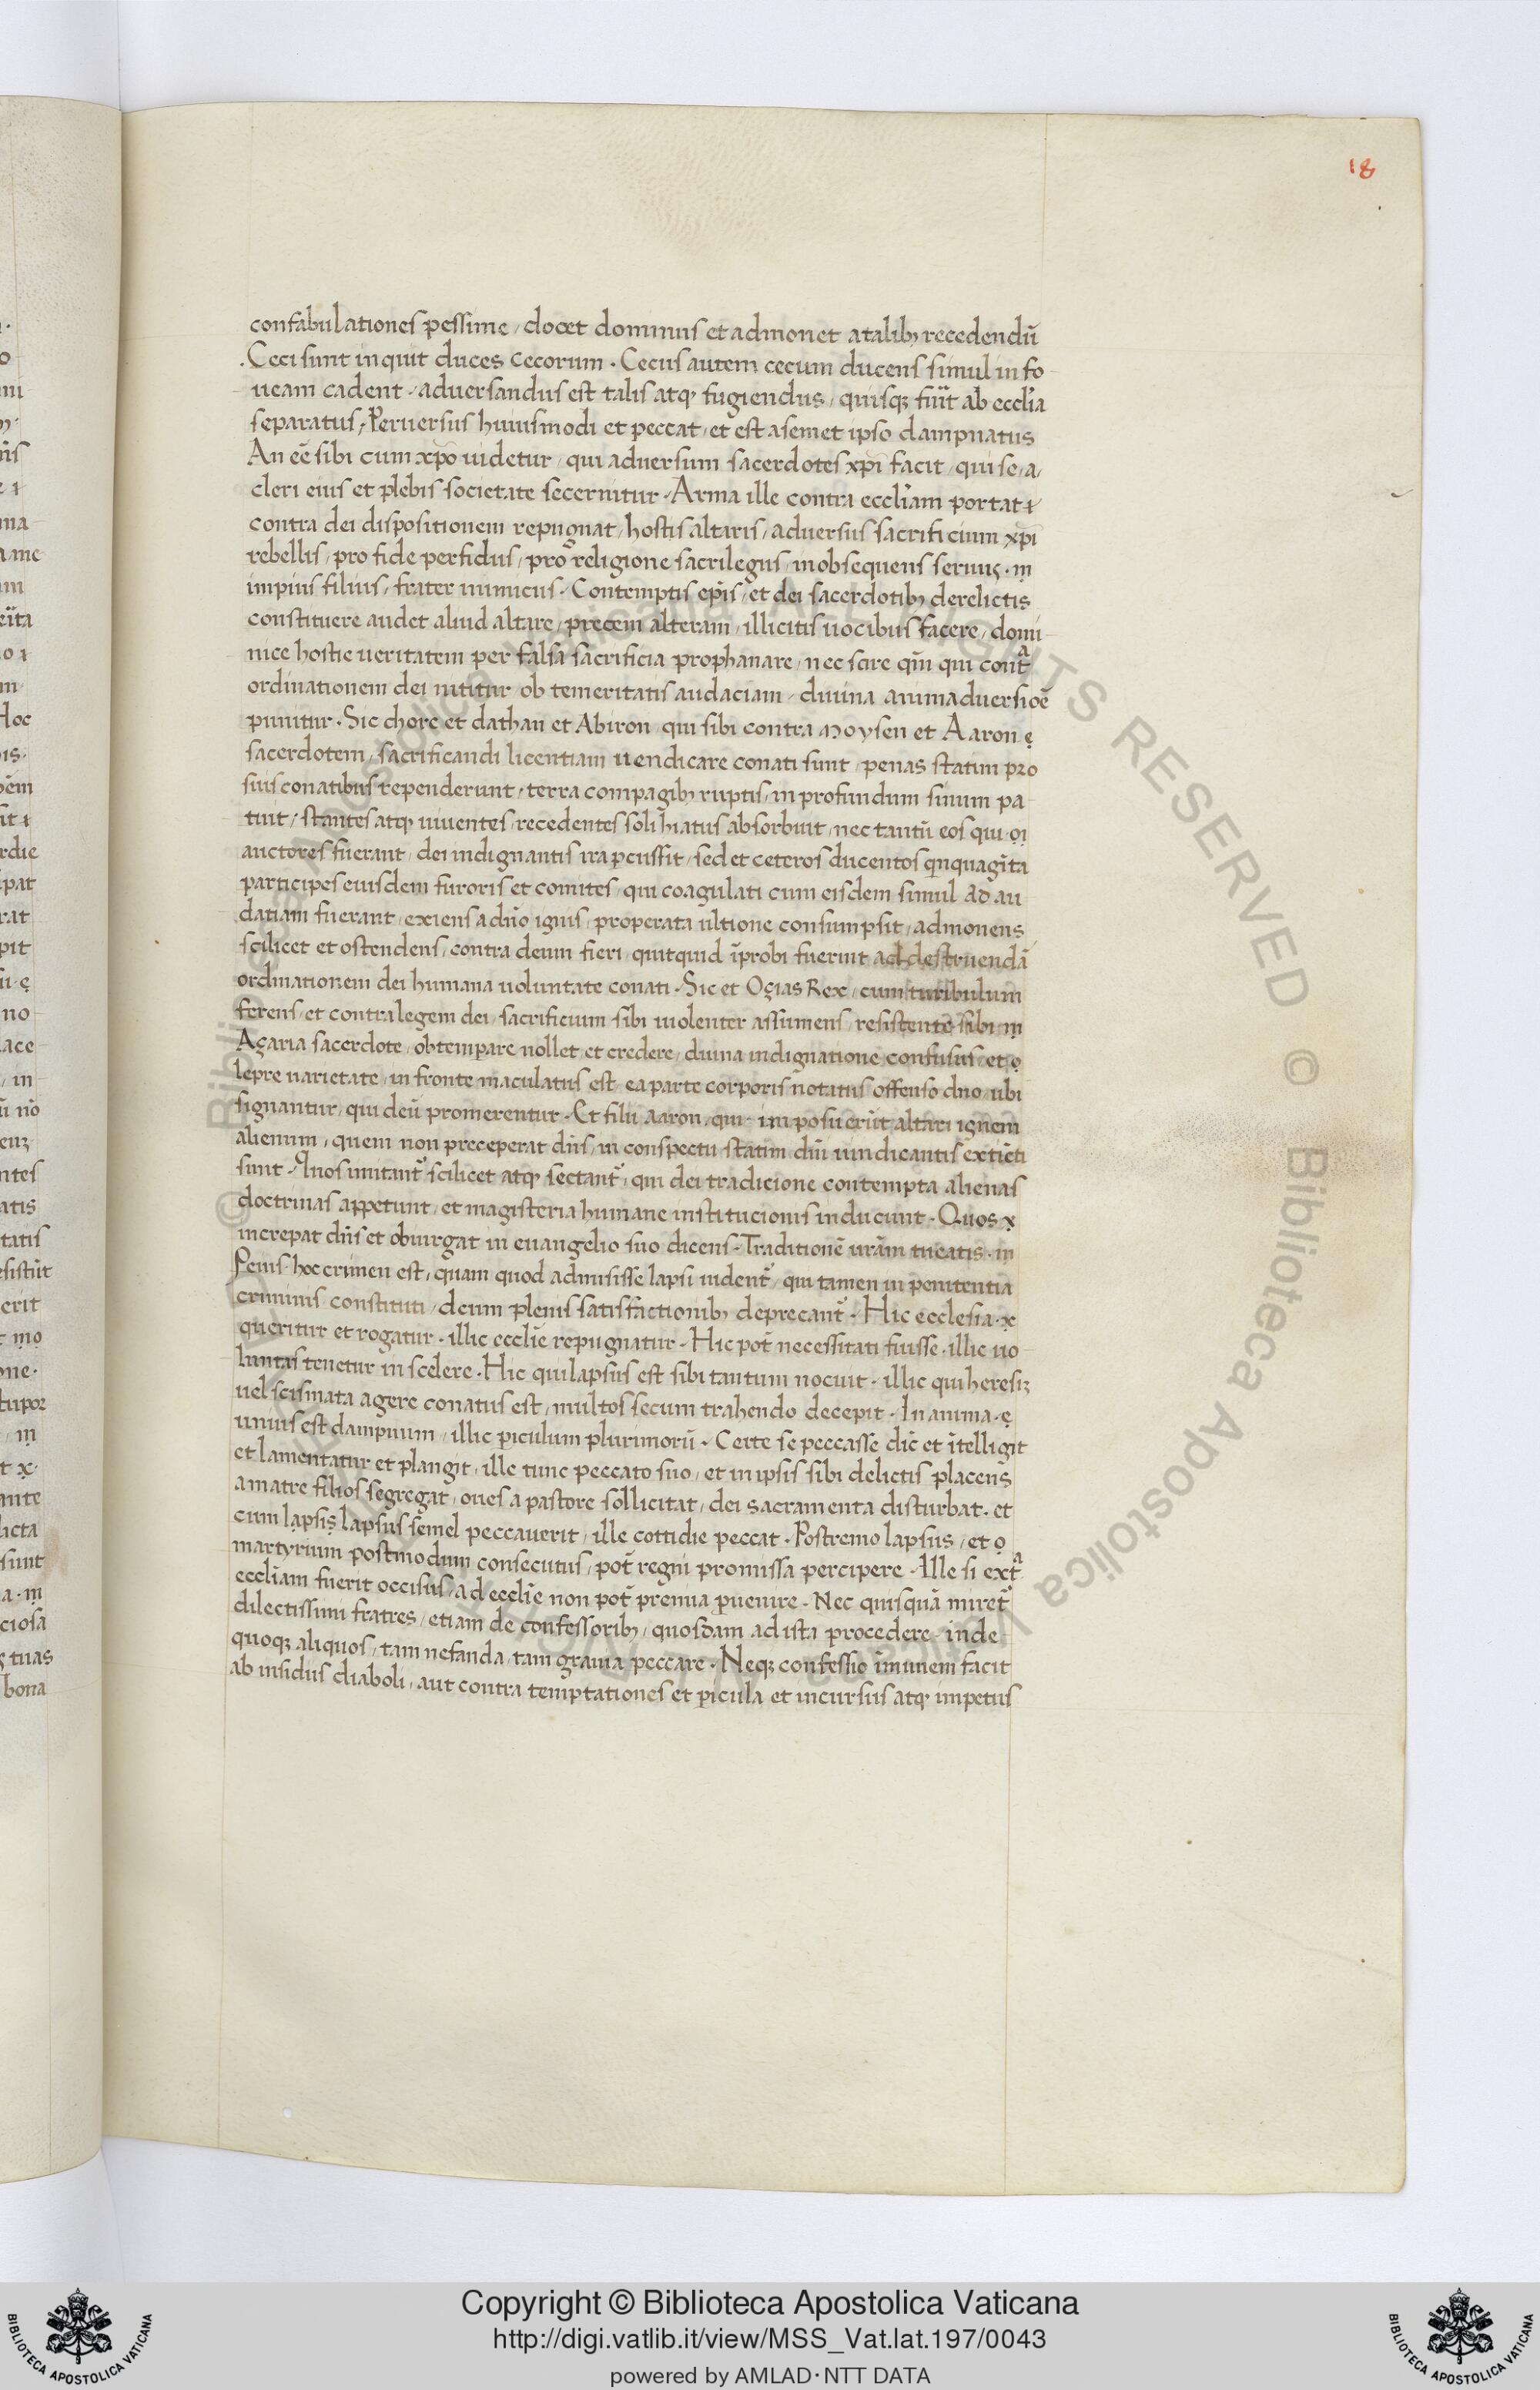 18
confabulationes pessime / docet dominus et admonet a talibꝫ recedendū
. Ceci sunt inquit duces cecorum . Cecus autem cecum ducens simul in fo
ueam cadent / aduersandus est talis atqꝫ fugiendus / quisqꝫ fuīt ab eccl̄ia
separatus / Peruersus huiusmodi et peccat / et est a semet ipso dampnatus
An eē sibi cum xp̄o uidetur / qui aduersum sacerdotes xp̄i facit / qui se / a /
cleri eius et plebis societate secernitur . Arma ille contra eccl̄iam portat ⁊
contra dei dispositionem repugnat / hostis altaris / aduersus sacrificium xp̄i
rebellis / pro fide perfidus / pro religione sacrilegus / inobsequens seruus . ṃ
impius filius / frater inimicus . Contemptis ep̄is / et dei sacerdotibꝫ derelictis
constituere audet aliud altare / precem alteram / illicitis uocibus facere / domi
nice hostie ueritatem per falsa sacrificia prophanare / nec scire qm̄ qui contᵃ
ordinationem dei nititur / ob temeritatis audaciam / diuina animaduersioē
punitur . Sic chore et dathan et Abiron / qui sibi contra Moysen et Aaron ẹ
sacerdotem / sacrificandi licentiam uendicare conati sunt / penas statim pro
suis conatibus rependerunt / terra compagibꝫ ruptis / in profundum sinum pa
tuit / stantes atqꝫ uiuentes / recedentes soli hiatus absorbuit / nec tantū eos qui ọị
auctores fuerant / dei indignantis ira ꝑcussit / sed et ceteros ducentos qinquagīta
participes eiusdem furoris et comites / qui coagulati cum eisdem simul ad au
datiam fuerant / exiens a dn̄o ignis / properata ultione consumpsit / admonens
scilicet et ostendens / contra deum fieri / quitquid īprobi fuerint ad destruendā
ordinationem dei humana uoluntate conati . Sic et Oçias Rex / cum turibulum
ferens / et contra legem dei / sacrificium sibi uiolenter assumens / resistente sibi ṃ
Açaria sacerdote / obtempare nollet et credere / diuina indignatione confusus / et ọ
lepre uarietate / in fronte maculatus est / ea parte corporis notatus offenso dn̄o / ubi
signantur / qui deū promerentur . Et filii Aaron / qui imposuerūt altari ignem
alienum / quem non preceperat dn̄s / in conspectu statim dn̄i uindicantis extīcti
sunt . Quos imitant᷑ scilicet atqꝫ sectant᷑ / qui dei tradicione contempta alienas
doctrinas appetunt / et magisteria humane institucionis inducunt . Quos x̣
increpat dn̄s et obiurgat in euangelio suo dicens . Traditionē ur̄am tueatis . ṃ
Peius hoc crimen est / quam quod admisisse lapsi uident᷑ / qui tamen in penitentia
criminis constituti / deum plenis satisfactionibꝫ deprecant᷑ . Hic ecclesia . x̣
queritur et rogatur . illic eccl̄ie repugnatur . Hic pot̄ necessitati fuisse . illic uo
luntas tenetur in scelere . Hic qui lapsus est sibi tantum nocuit . illic qui heresiꝫ
uel scismata agere conatus est / multos secum trahendo decepit . In anima . ẹ
unius est dampnum / illic ꝑiculum plurimorū . Certe se peccasse dic̄ et ītelligit
et lamentatur et plangit / ille tunc peccato suo / et in ipsis sibi delictis placens
a matre filios segregat / oues a pastore sollicitat / dei sacramenta disturbat . et
cum lapsis lapsus semel peccauerit / ille cottidie peccat . Postremo lapsus / et ọ
martyrium postmodum consecutus / pot̄ regni promissa percipere . Ille si extᵃ
eccl̄iam fuerit occisus / ad eccl̄ie non pot̄ premia ꝑuenire . Nec quisquā miret᷑
dilectissimi fratres / etiam de confessoribꝫ / quosdam ad ista procedere / inde
quoqꝫ aliquos / tam nefanda / tam grauia peccare . Neqꝫ confessio īmunem facit
ab insidiis diaboli / aut contra temptationes et ꝑicula et incursus atqꝫ impetus
Copyright © Biblioteca Apostolica Vaticana
http://digi.vatlib.it/view/MSS_Vat.lat.197/0043
powered by AMLAD·NTT DATA